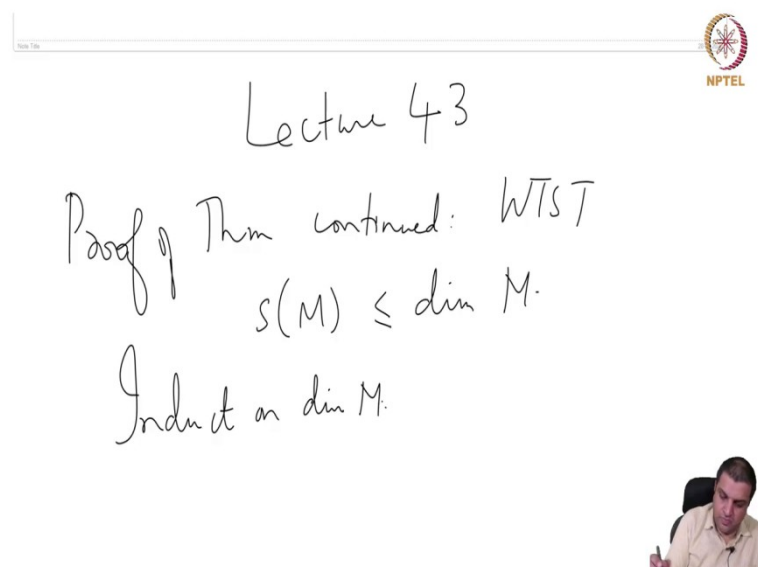 Note Title
NPTEL
Lecture 43
Proof of Thm continued: WTST
s(M) ≤ dim M.
Induct on dim M.